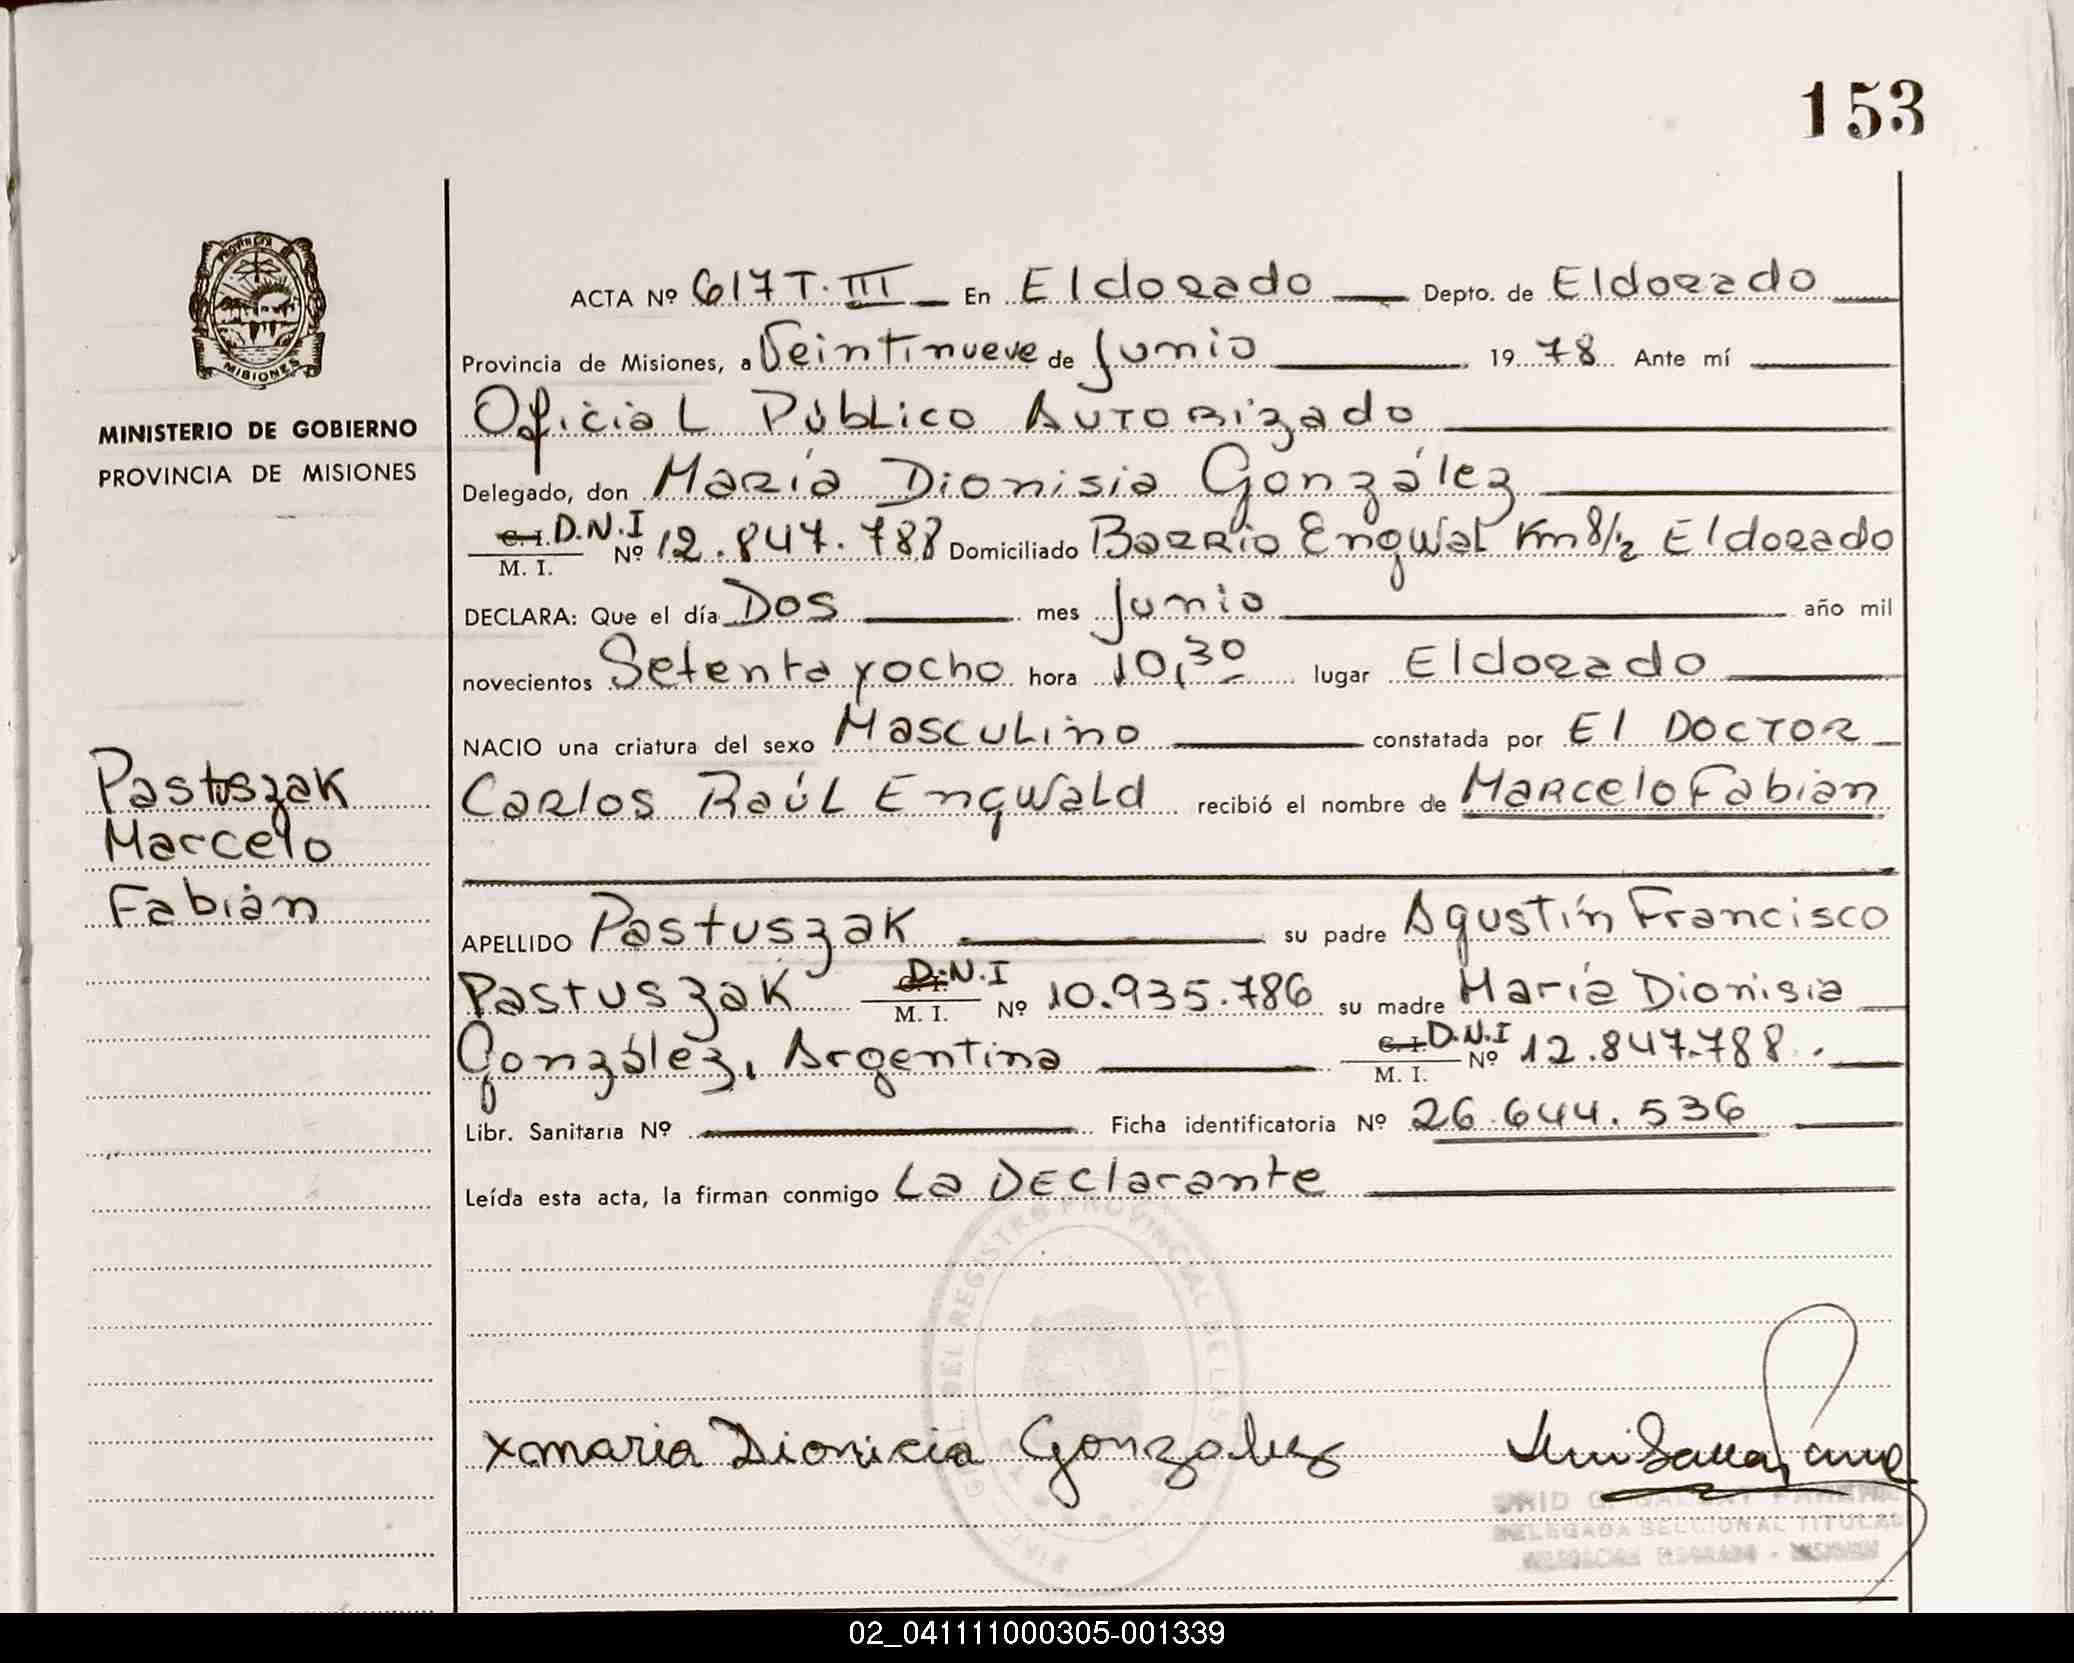 153
PROVINCIA DE
MISIONES
MINISTERIO DE GOBIERNO
PROVINCIA DE MISIONES
Pastuszak
Marcelo
Fabián
ACTA Nº 617 T. III En Eldorado Depto. de Eldorado
Provincia de Misiones, a Veintinueve de Junio 1978 Ante mí
Oficial Público Autorizado
Delegado, don María Dionisia González
C. I. D.N.I
M. I. Nº 12.847.788 Domiciliado Barrio Engwal Km 8/½ Eldorado
DECLARA: Que el día Dos mes Junio año mil
novecientos Setenta y ocho hora 10,30 lugar Eldorado
NACIO una criatura del sexo Masculino constatada por El Doctor
Carlos Raúl Engwald recibió el nombre de Marcelo Fabián
APELLIDO Pastuszak su padre Agustín Francisco
Pastuszak D.N.I M. I. Nº 10.935.786 su madre María Dionisia
González, Argentina C. I. D.N.I M. I. Nº 12.847.788.
Libr. Sanitaria Nº Ficha identificatoria Nº 26.644.536
Leída esta acta, la firman conmigo La Declarante
DEL REGISTRO PROVINCIAL DE LAS
x maria Dionicia Gonzalez
DELEGADA SECCIONAL TITULAR
02_041111000305-001339